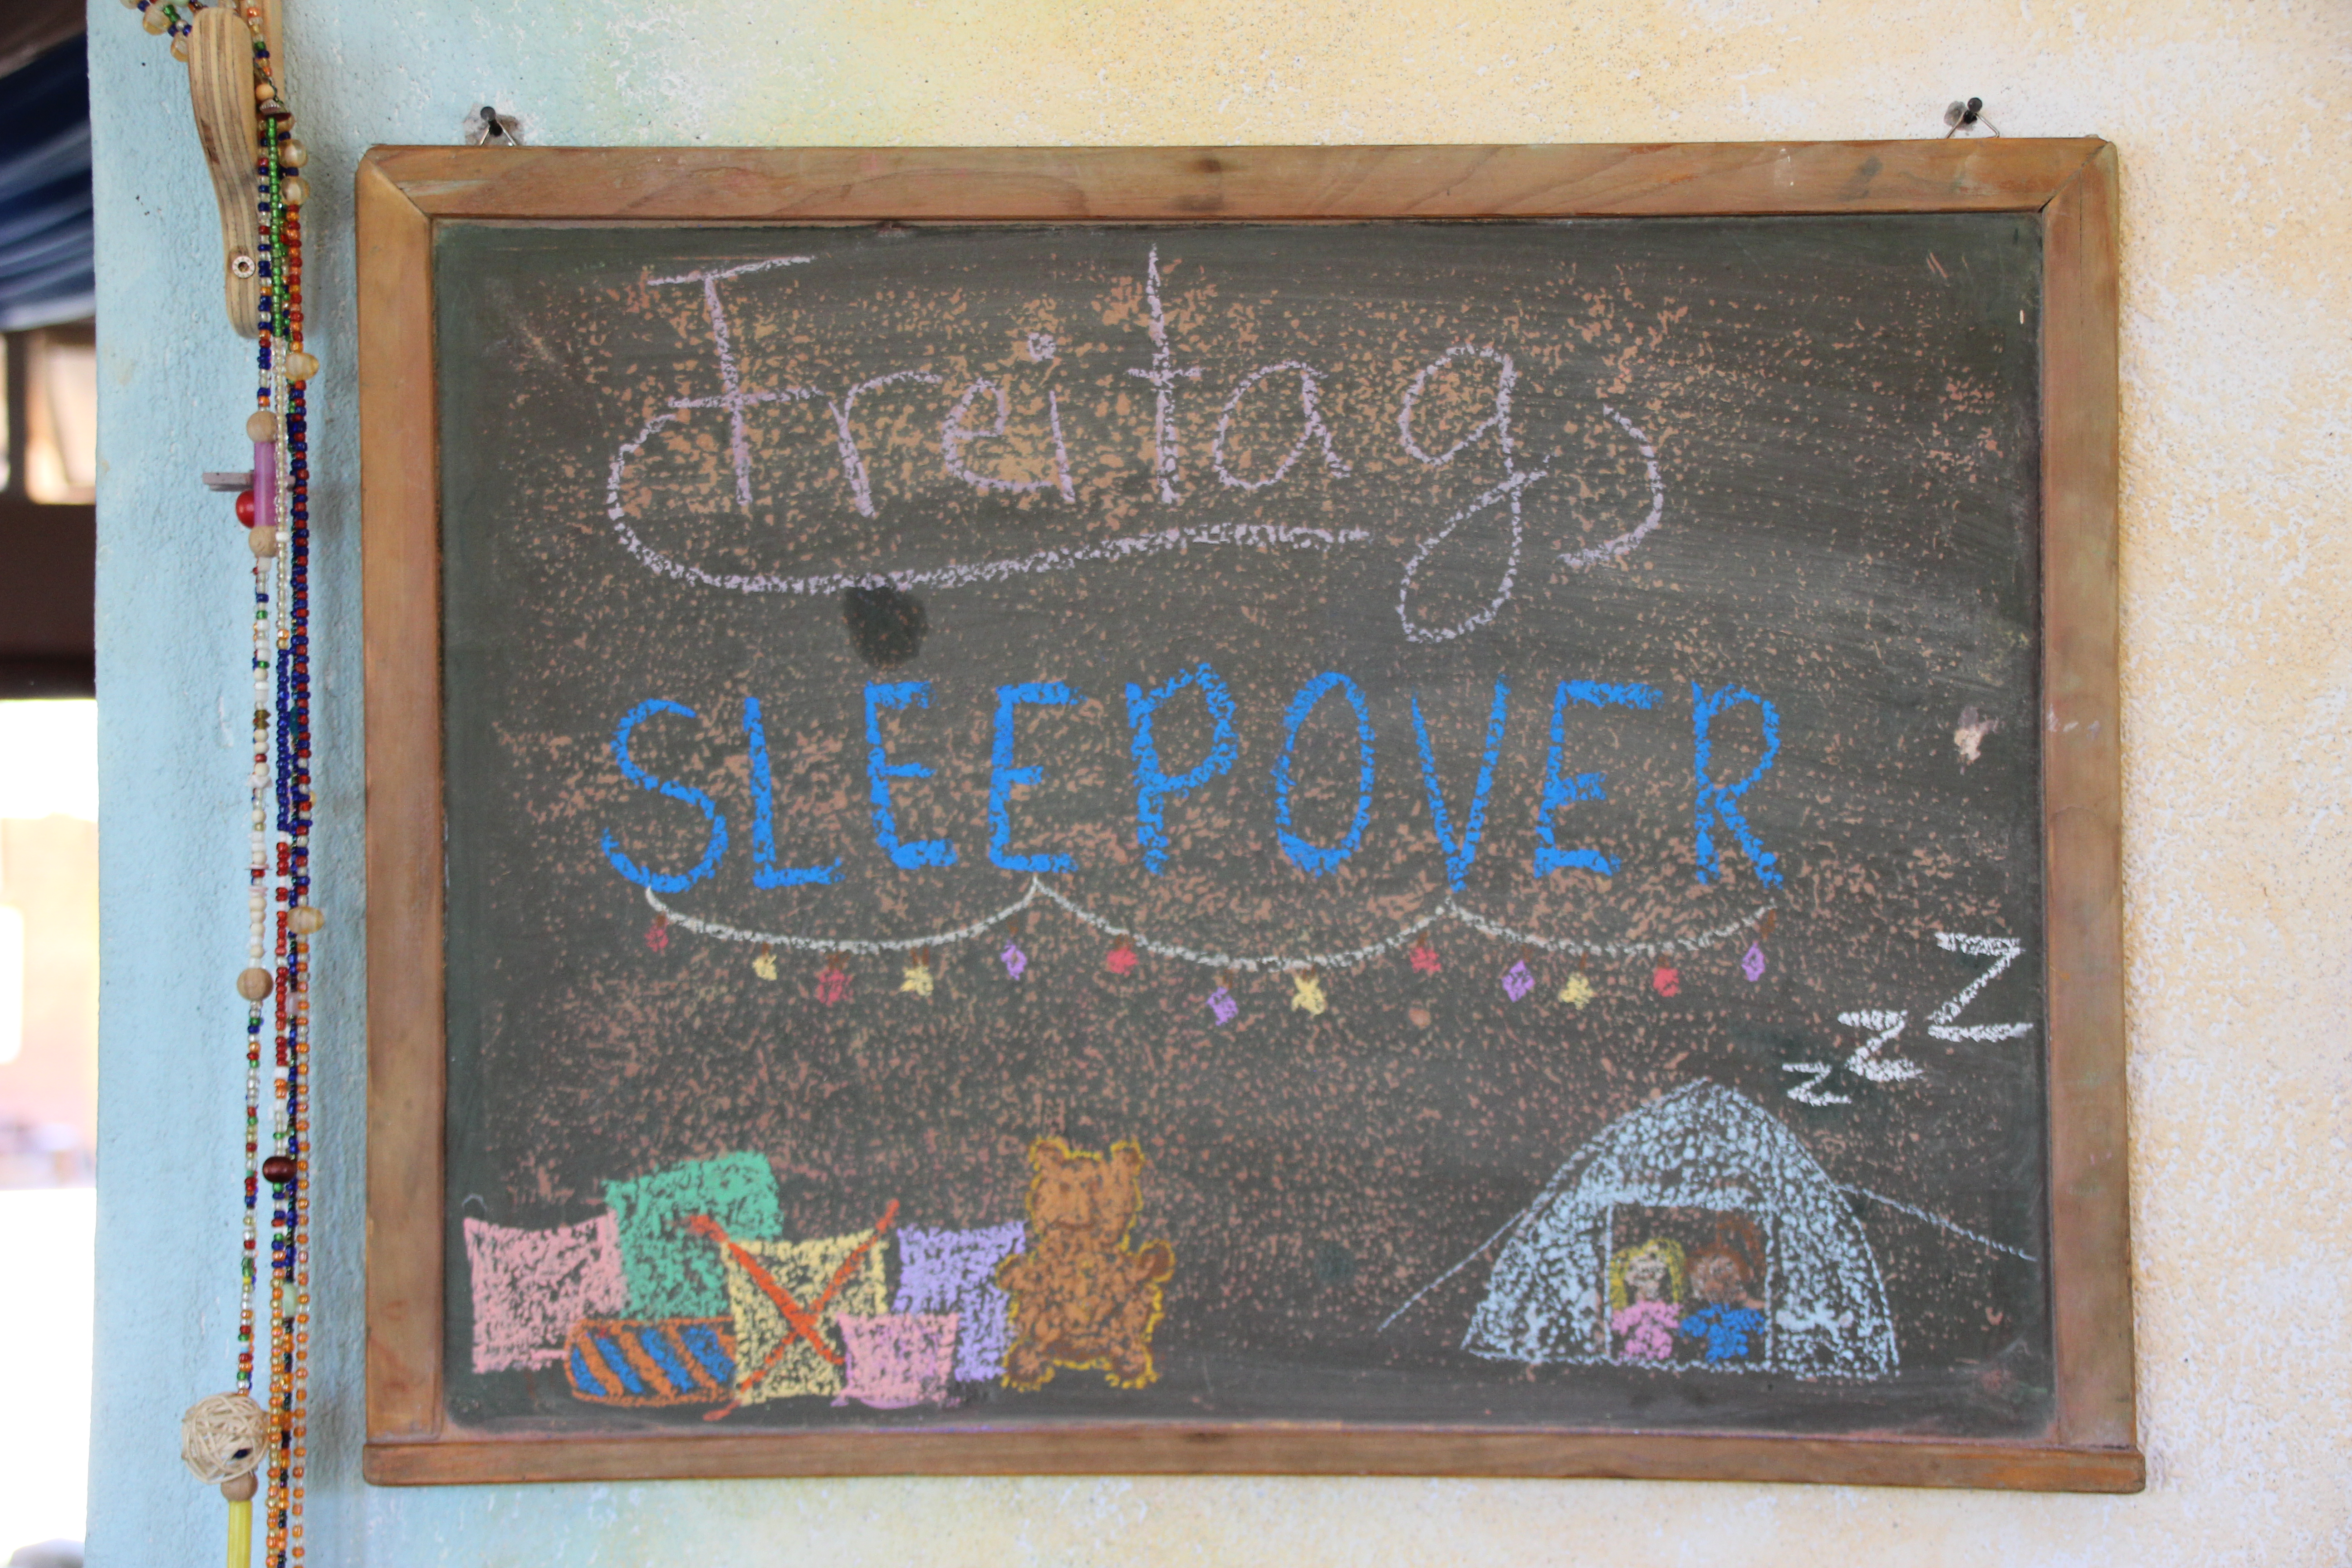 Freitag
SLEEPOVER
zzZ